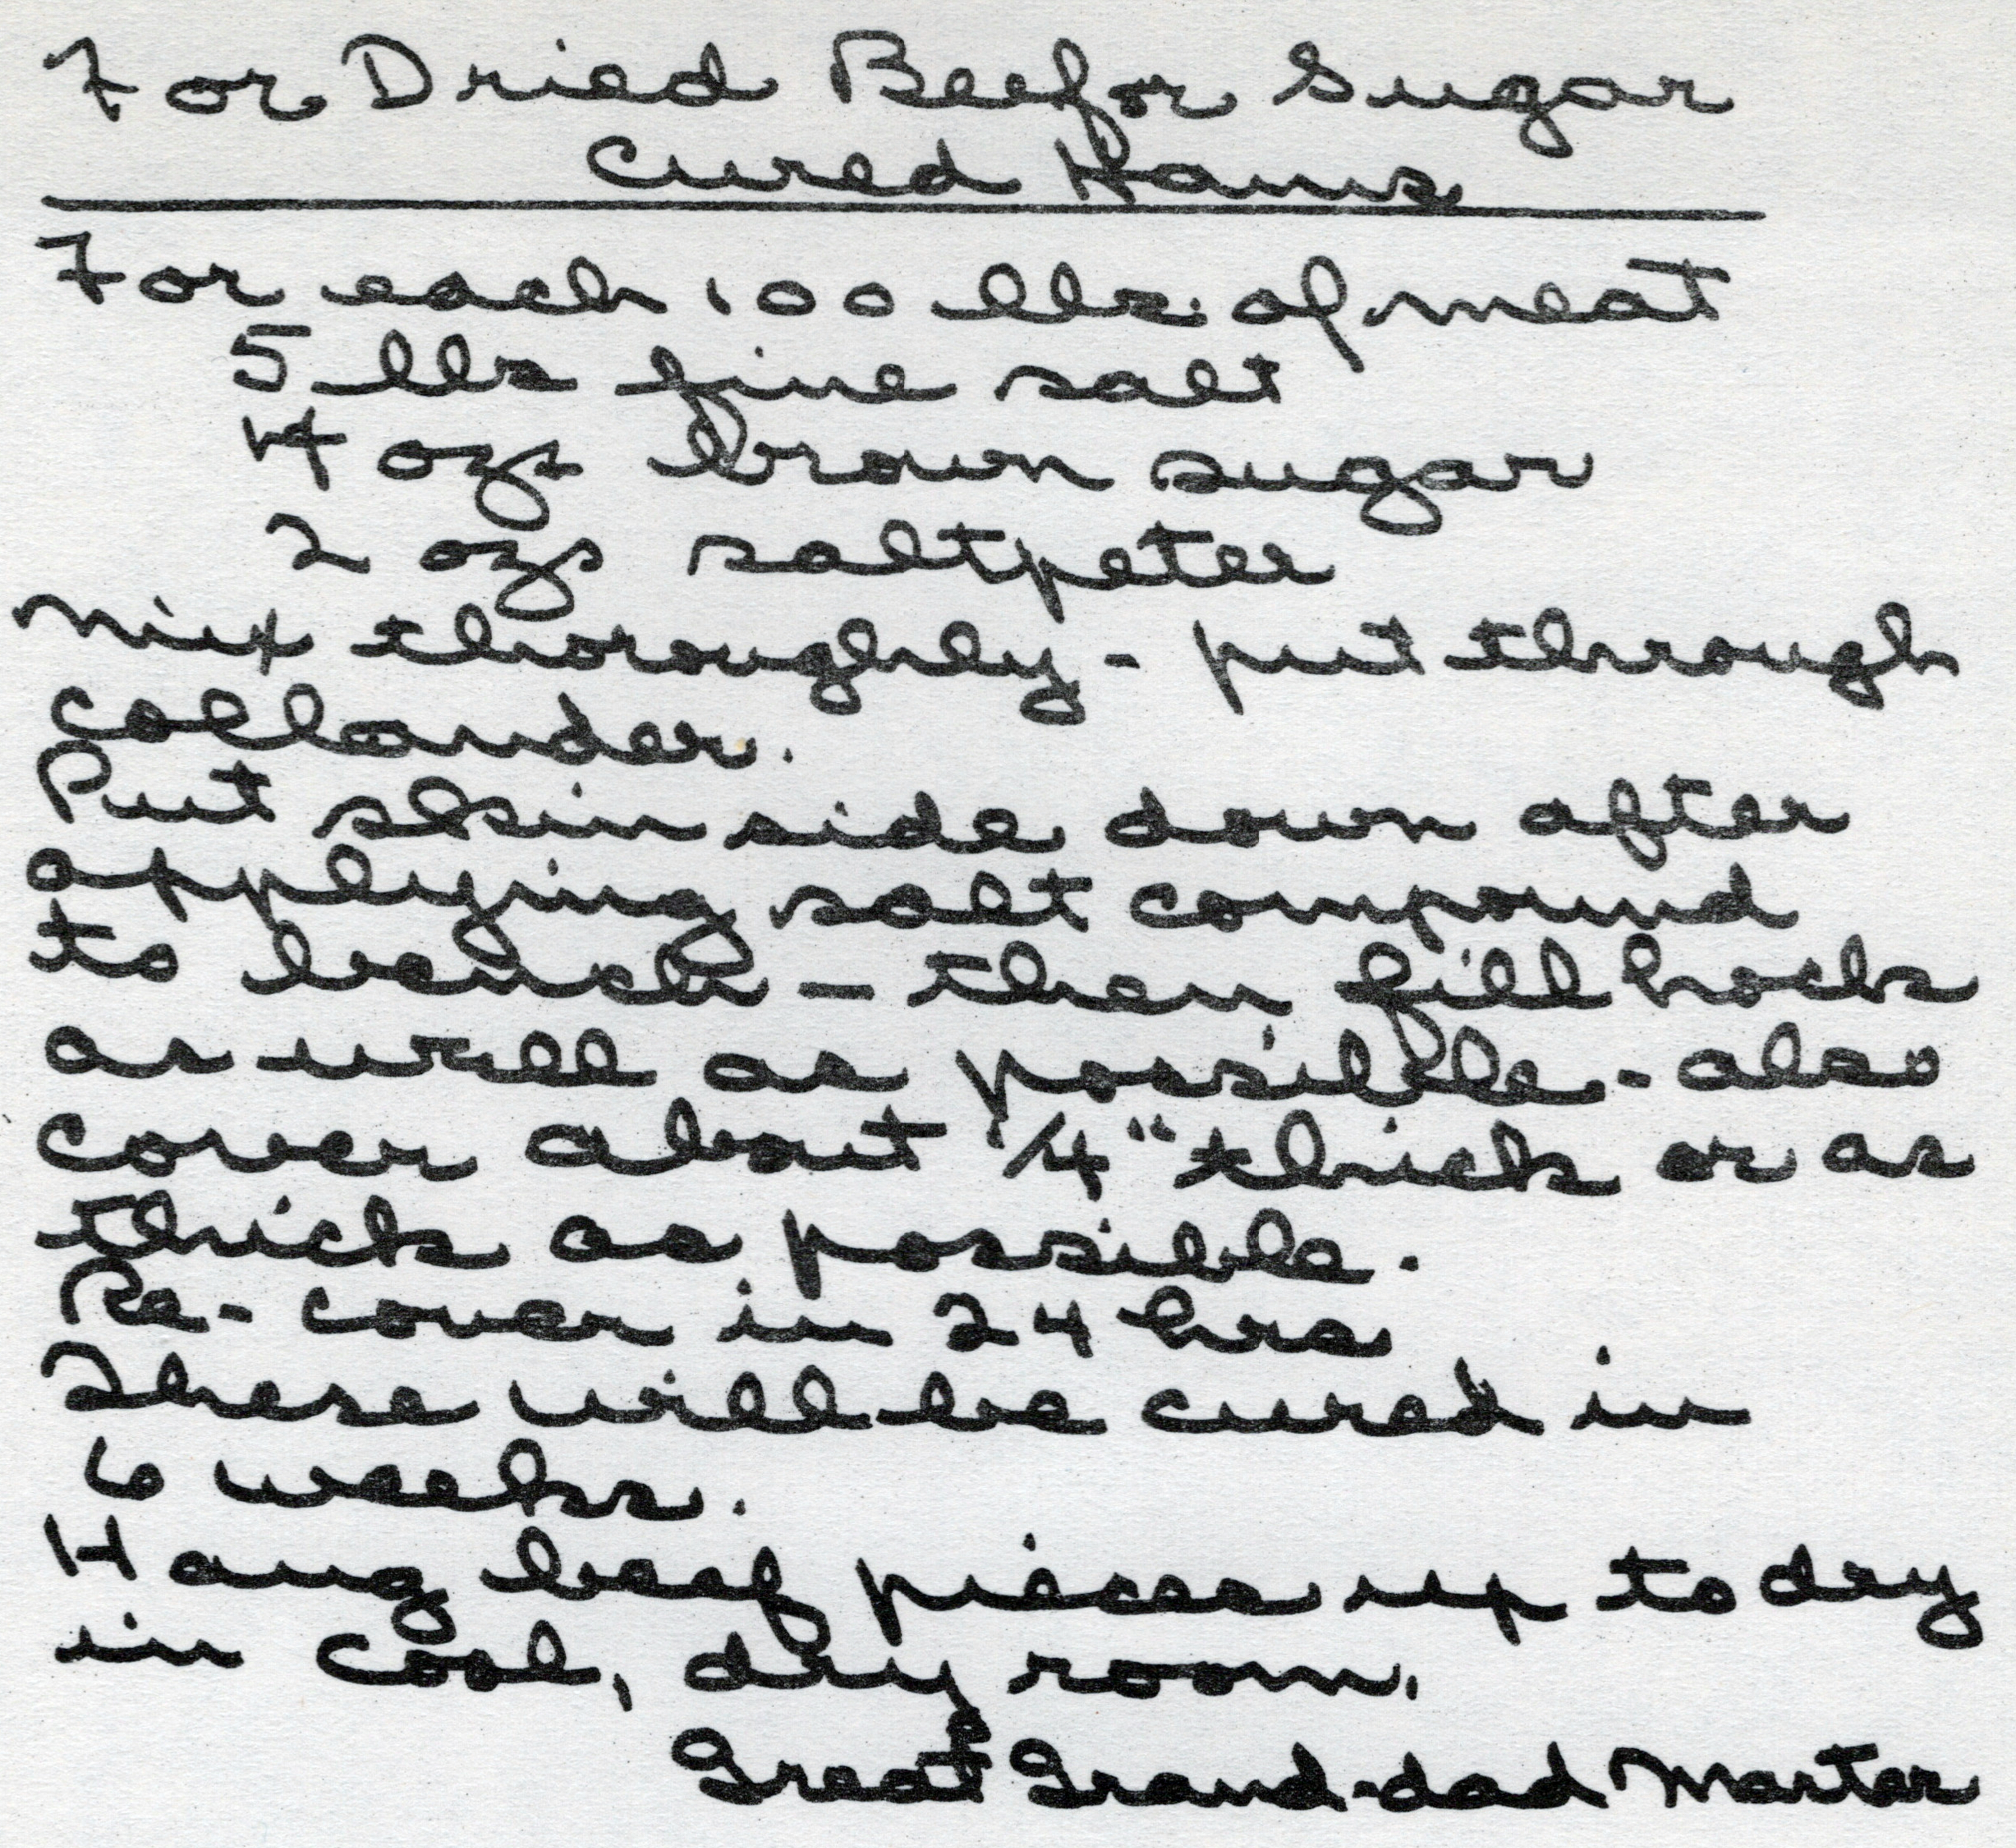 For Dried Beef or Sugar
Cured Hams
For each 100 lbs. of meat
5 lbs fine salt
4 ozs brown sugar
2 ozs saltpeter
Mix thoroughly - put through
collander.
Put skin side down after
applying salt compound
to bench - then fill hocks
as well as possible - also
cover about 1/4" thick or as
thick as possible.
Re-cover in 24 hrs
These will be cured in
6 weeks.
Hang beef pieces up to dry
in cool, dry room.
Great Grand-dad Marter